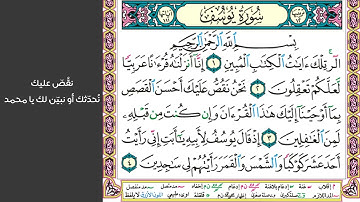 سُورَةُ يُوسُفَ
بِسْمِ اللَّهِ الرَّحْمَٰنِ الرَّحِيمِ
الٓر تِلْكَ ءَايَٰتُ الْكِتَٰبِ الْمُبِينِ ۝١ إِنَّا أَنزَلْنَٰهُ قُرْءَٰنًا عَرَبِيًّا
لَّعَلَّكُمْ تَعْقِلُونَ ۝٢ نَحْنُ نَقُصُّ عَلَيْكَ أَحْسَنَ الْقَصَصِ
بِمَا أَوْحَيْنَا إِلَيْكَ هَٰذَا الْقُرْءَانَ وَإِن كُنتَ مِن قَبْلِهِ
لَمِنَ الْغَٰفِلِينَ ۝٣ إِذْ قَالَ يُوسُفُ لِأَبِيهِ يَٰأَبَتِ إِنِّي رَأَيْتُ
أَحَدَ عَشَرَ كَوْكَبًا وَالشَّمْسَ وَالْقَمَرَ رَأَيْتُهُمْ لِي سَٰجِدِينَ ۝٤
نقُصّ عليك
نُحدّثك أو نبيّن لك يا محمد